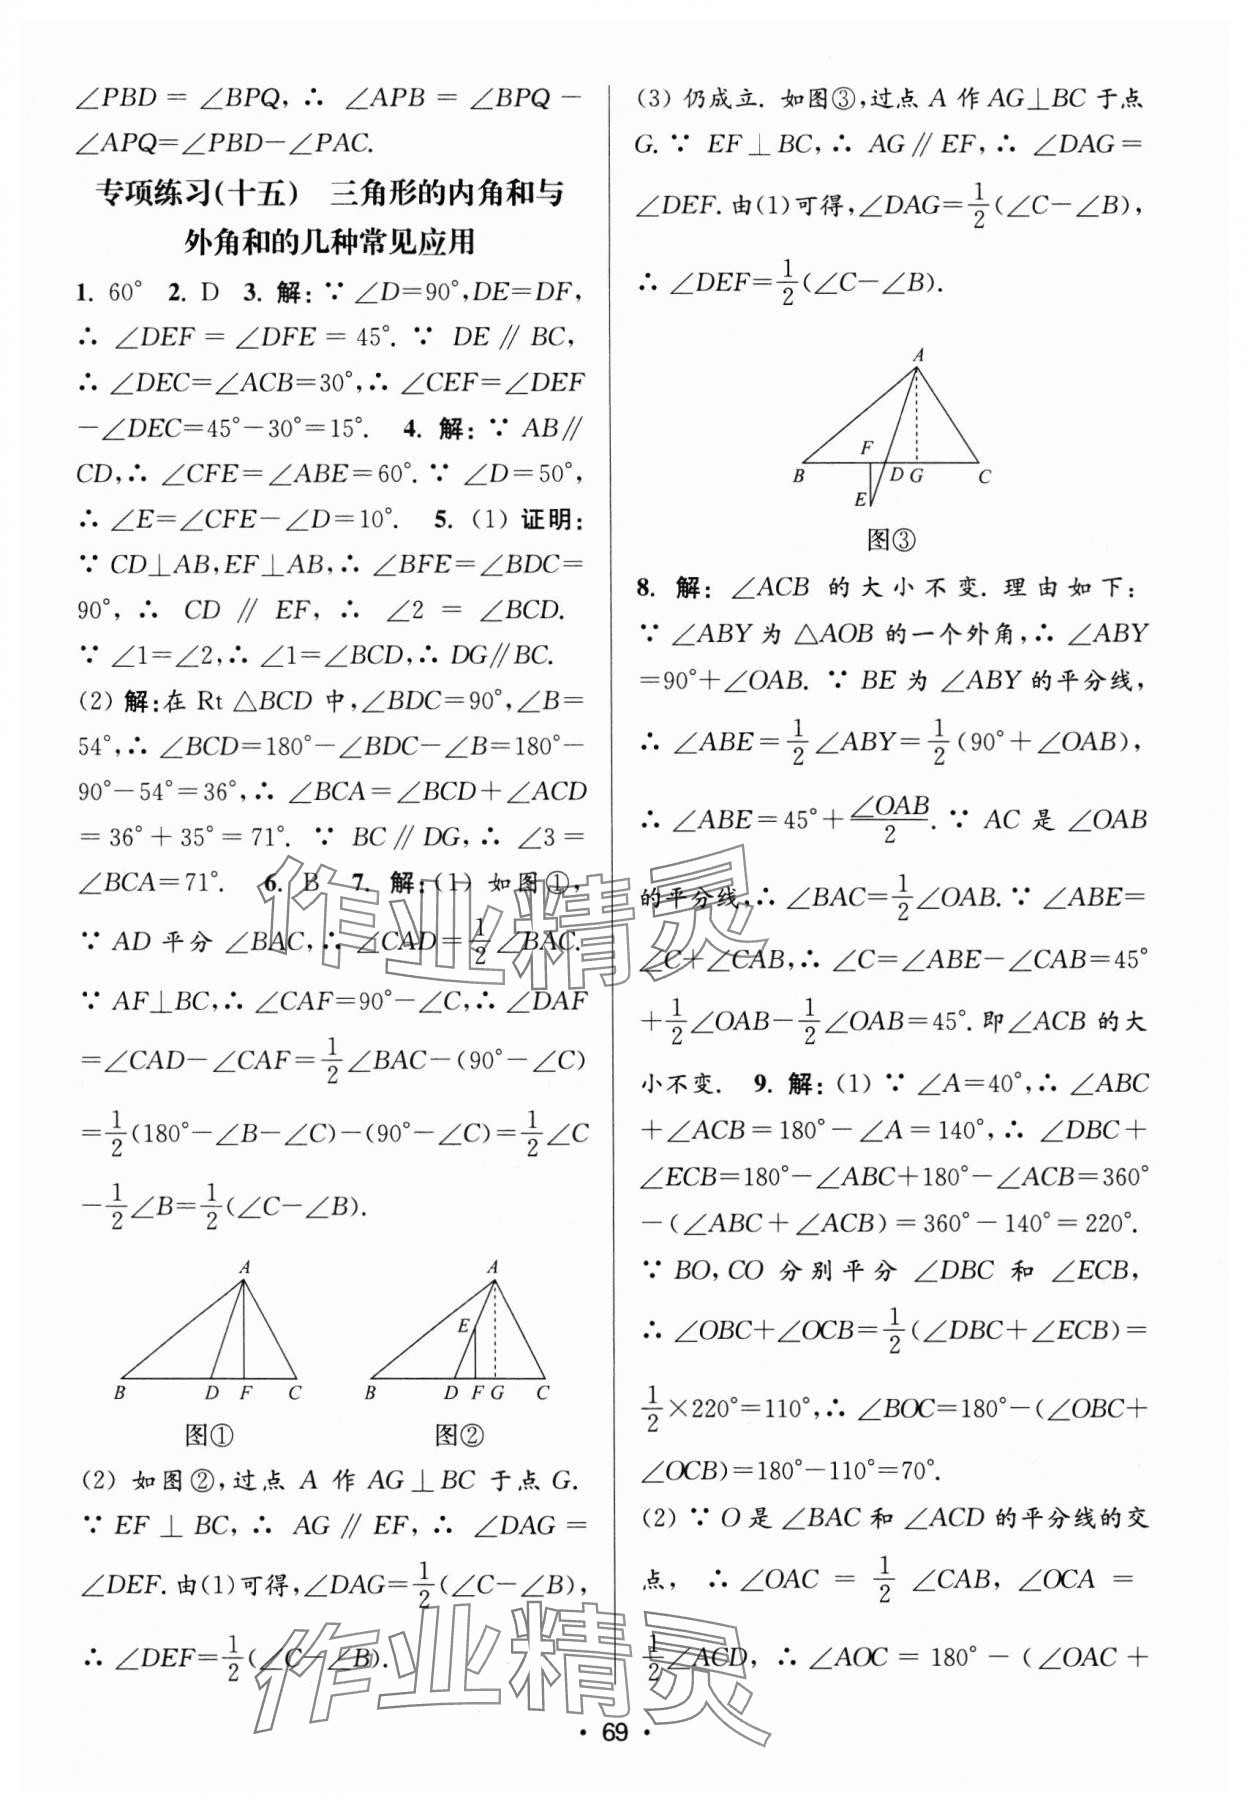 ∠PBD = ∠BPQ, ∴ ∠APB = ∠BPQ −
∠APQ=∠PBD−∠PAC.
专项练习(十五) 三角形的内角和与
外角和的几种常见应用
1. 60° 2. D 3. 解: ∵ ∠D=90°,DE=DF,
∴ ∠DEF = ∠DFE = 45°. ∵ DE // BC,
∴ ∠DEC=∠ACB=30°,∴ ∠CEF=∠DEF
−∠DEC=45°−30°=15°. 4. 解: ∵ AB//
CD,∴ ∠CFE=∠ABE=60°. ∵ ∠D=50°,
∴ ∠E=∠CFE−∠D=10°. 5. (1) 证明:
∵ CD⊥AB,EF⊥AB,∴ ∠BFE=∠BDC=
90°, ∴ CD // EF, ∴ ∠2 = ∠BCD.
∵ ∠1=∠2,∴ ∠1=∠BCD,∴ DG//BC.
(2) 解:在 Rt △BCD 中,∠BDC=90°,∠B=
54°,∴ ∠BCD=180°−∠BDC−∠B=180°−
90°−54°=36°,∴ ∠BCA=∠BCD+∠ACD
=36°+35°=71°. ∵ BC // DG,∴ ∠3=
∠BCA=71°. 6. B 7. 解:(1) 如图①,
∵ AD 平分 ∠BAC,∴ ∠CAD=1/2 ∠BAC.
∵ AF⊥BC,∴ ∠CAF=90°−∠C,∴ ∠DAF
=∠CAD−∠CAF=1/2∠BAC−(90°−∠C)
=1/2(180°−∠B−∠C)−(90°−∠C)=1/2∠C
−1/2∠B=1/2(∠C−∠B).
A
B D F C
图①
A
E
B D F G C
图②
(2) 如图②,过点 A 作 AG⊥BC 于点 G.
∵ EF ⊥ BC, ∴ AG // EF, ∴ ∠DAG =
∠DEF. 由(1)可得,∠DAG=1/2(∠C−∠B),
∴ ∠DEF=1/2(∠C−∠B).
(3) 仍成立. 如图③,过点 A 作 AG⊥BC 于点
G. ∵ EF ⊥ BC, ∴ AG // EF, ∴ ∠DAG=
∠DEF. 由(1)可得,∠DAG=1/2(∠C−∠B),
∴ ∠DEF=1/2(∠C−∠B).
A
F
B D G C
E
图③
8. 解: ∠ACB 的大小不变. 理由如下:
∵ ∠ABY 为 △AOB 的一个外角,∴ ∠ABY
=90°+∠OAB. ∵ BE 为 ∠ABY 的平分线,
∴ ∠ABE=1/2∠ABY=1/2(90°+∠OAB),
∴ ∠ABE=45°+∠OAB/2. ∵ AC 是 ∠OAB
的平分线,∴ ∠BAC=1/2∠OAB. ∵ ∠ABE=
∠C+∠CAB,∴ ∠C=∠ABE−∠CAB=45°
+1/2∠OAB−1/2∠OAB=45°. 即∠ACB 的大
小不变. 9. 解: (1) ∵ ∠A=40°,∴ ∠ABC
+∠ACB=180°−∠A=140°,∴ ∠DBC+
∠ECB=180°−∠ABC+180°−∠ACB=360°
−(∠ABC+∠ACB)=360°−140°=220°.
∵ BO,CO 分别平分 ∠DBC 和 ∠ECB,
∴ ∠OBC+∠OCB=1/2(∠DBC+∠ECB)=
1/2×220°=110°,∴ ∠BOC=180°−(∠OBC+
∠OCB)=180°−110°=70°.
(2) ∵ O是 ∠BAC 和 ∠ACD 的平分线的交
点, ∴ ∠OAC = 1/2 ∠CAB, ∠OCA =
1/2∠ACD, ∴ ∠AOC = 180° − (∠OAC +
· 69 ·
作业精灵
作业精灵